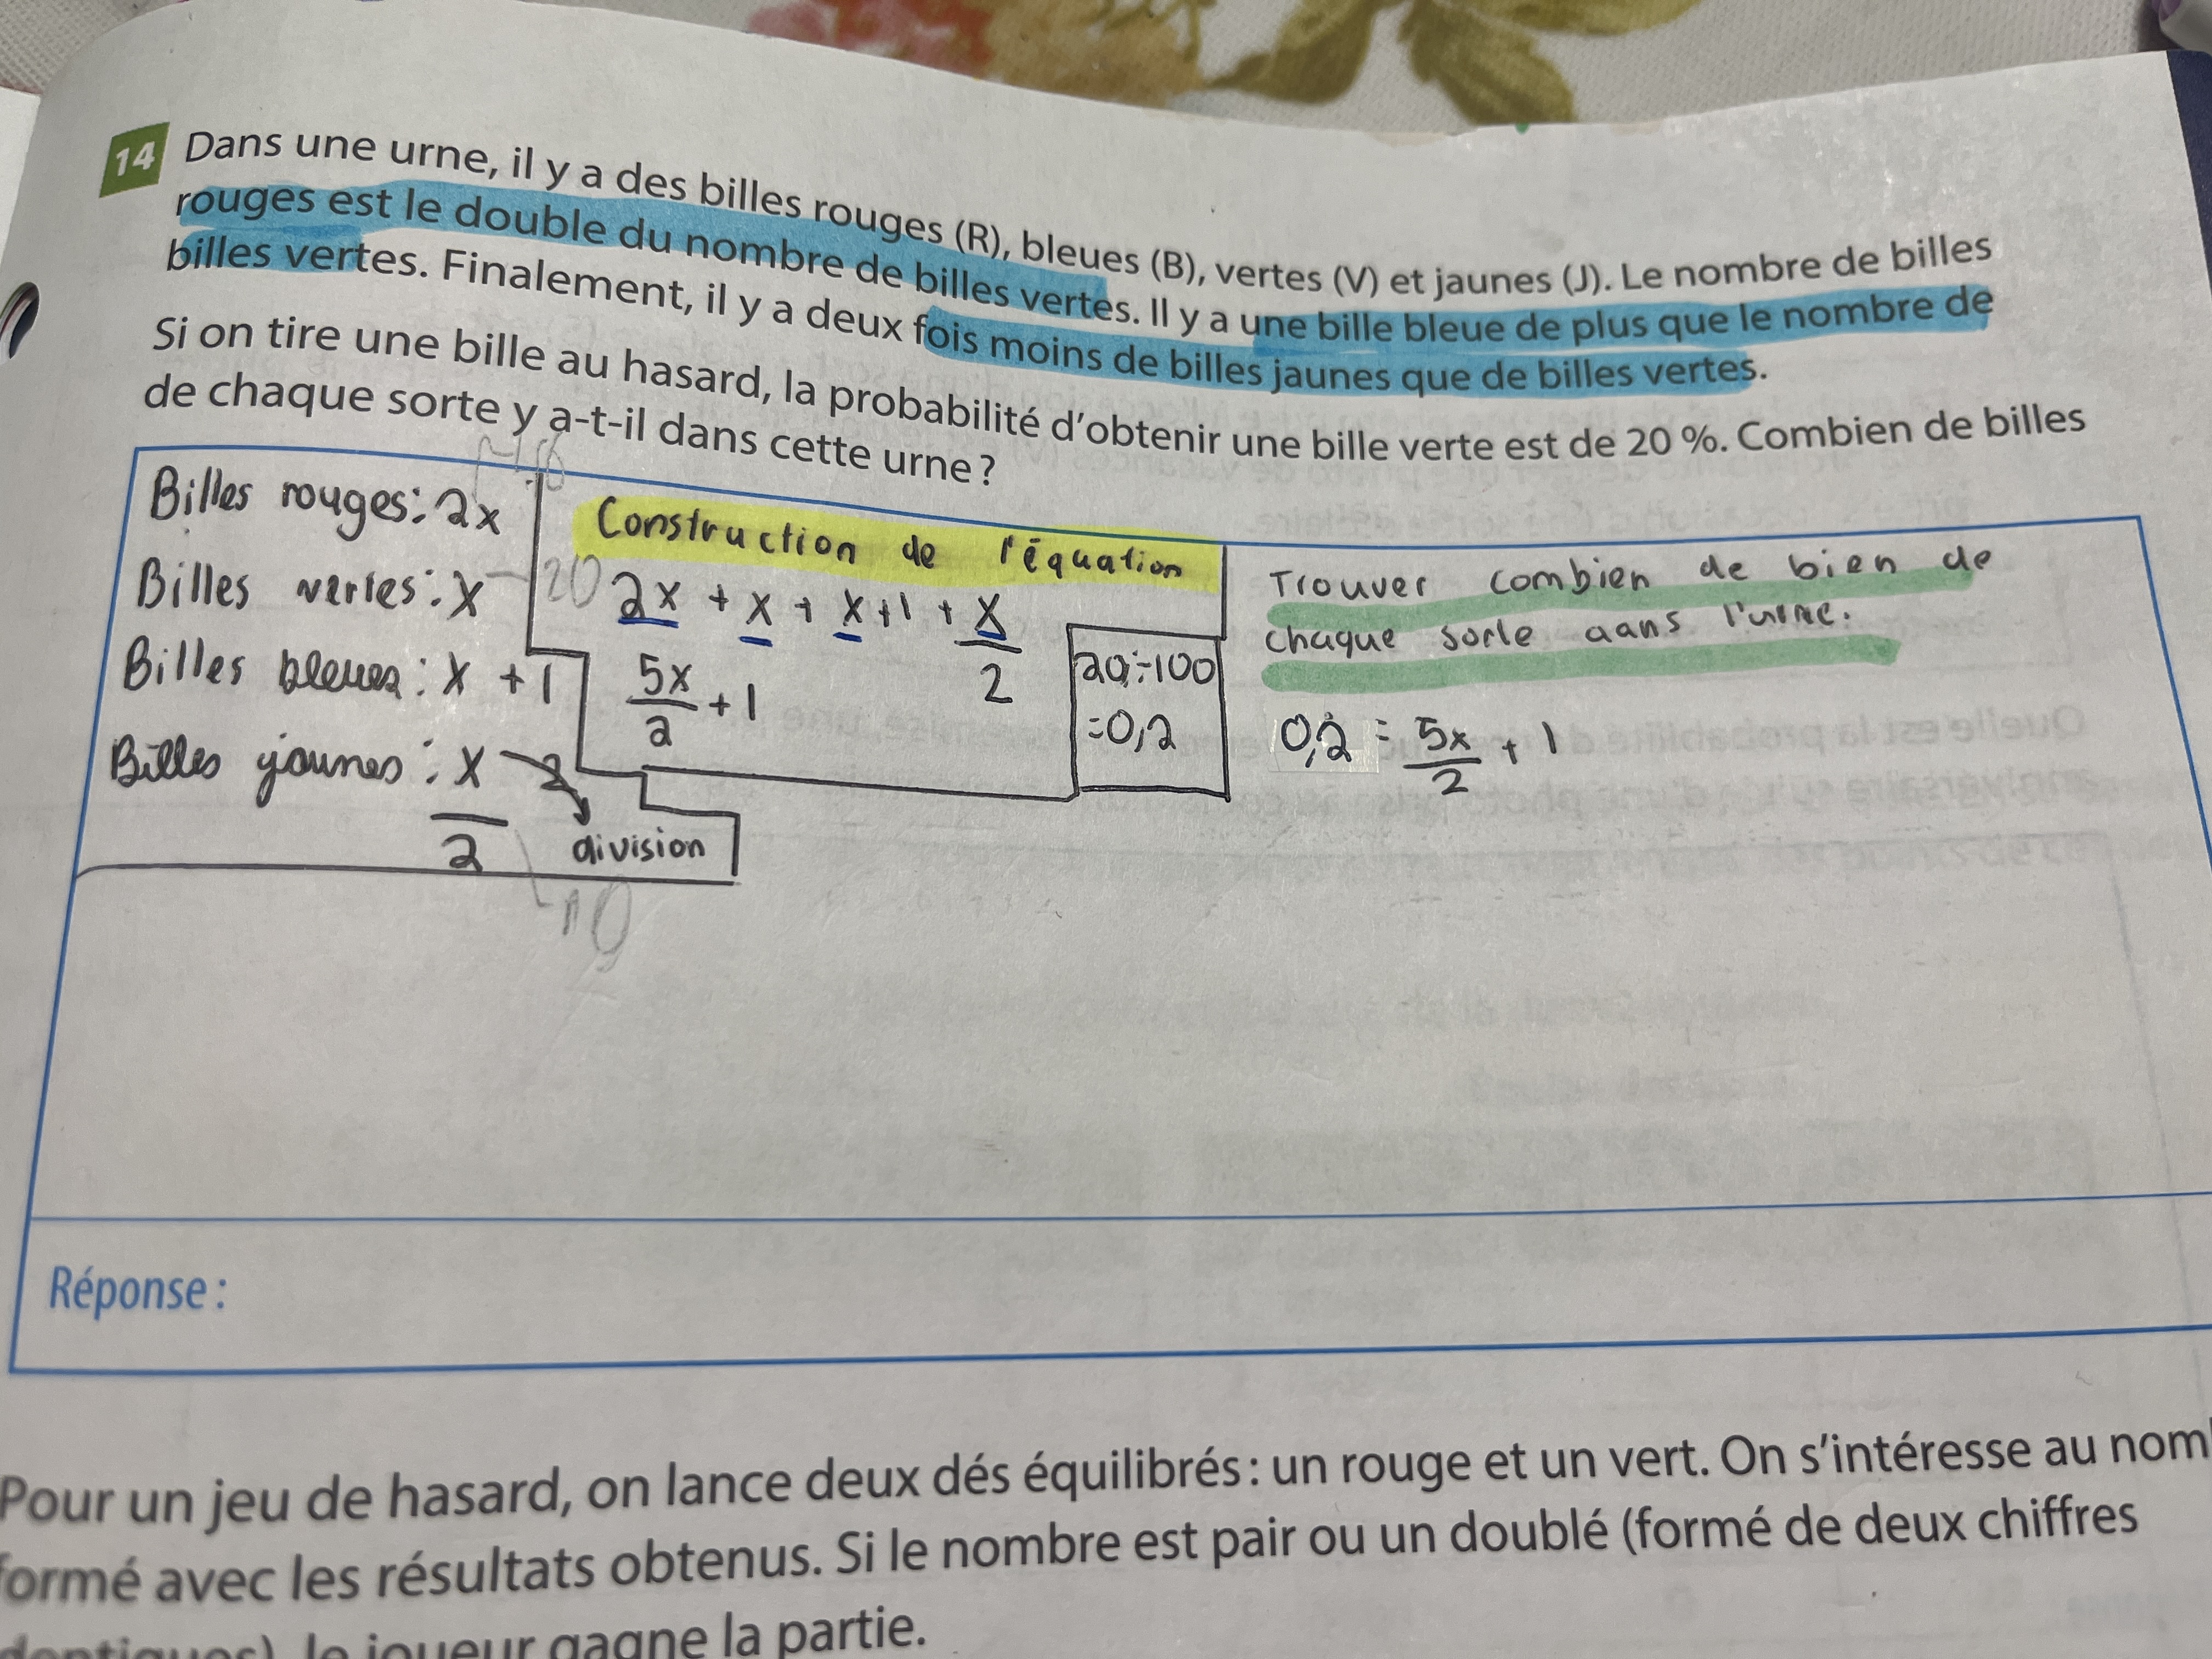 14 Dans une urne, il y a des billes rouges (R), bleues (B), vertes (V) et jaunes (J). Le nombre de billes
rouges est le double du nombre de billes vertes. Il y a une bille bleue de plus que le nombre de
billes vertes. Finalement, il y a deux fois moins de billes jaunes que de billes vertes.
Si on tire une bille au hasard, la probabilité d'obtenir une bille verte est de 20 %. Combien de billes
de chaque sorte y a-t-il dans cette urne ?
Billes rouges : 2x
Billes vertes : x 20
Billes bleues : x + 1
Billes jaunes : x
2
2
division
10
Construction de l'équation
2x + x + x + 1 + x
2
5x
2
+ 1
20 ÷ 100
= 0,2
Trouver combien de bien de
chaque sorte dans l'urne.
0,2 = 5x + 1
2
Réponse :
Pour un jeu de hasard, on lance deux dés équilibrés : un rouge et un vert. On s'intéresse au nom
formé avec les résultats obtenus. Si le nombre est pair ou un doublé (formé de deux chiffres
le joueur gagne la partie.